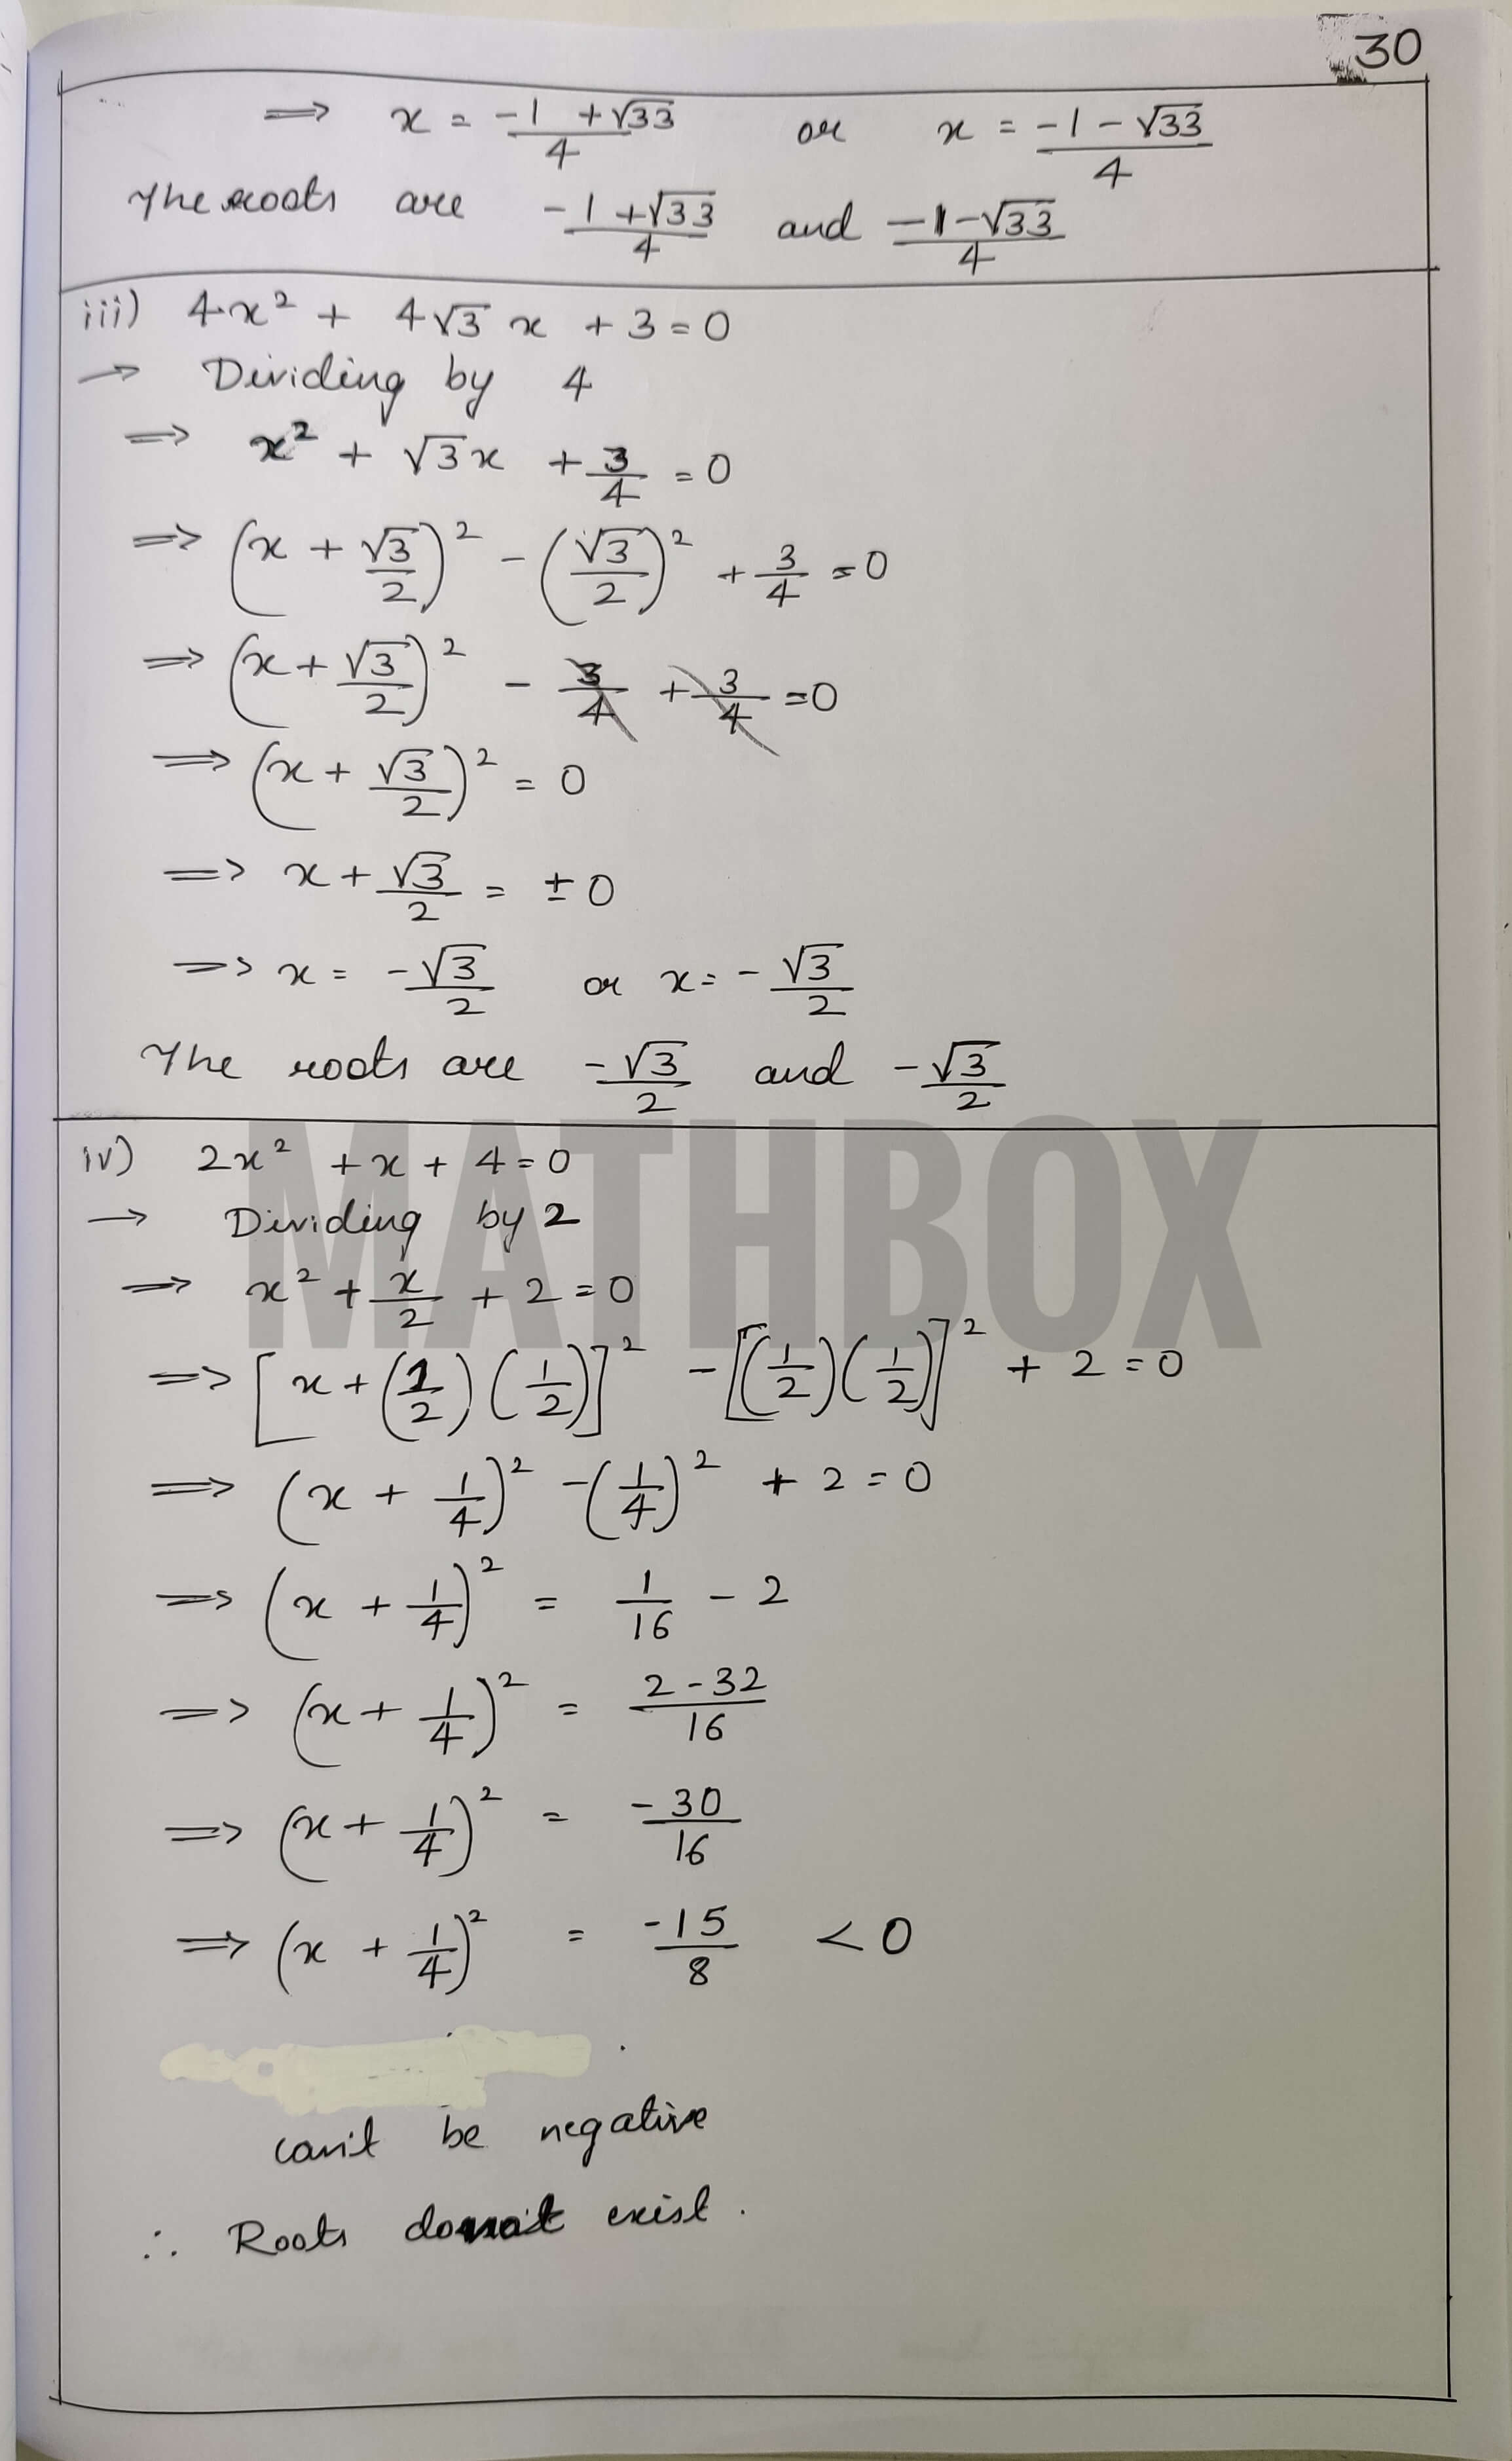 30
⇒ x = (-1 + √33)/4 or x = (-1 - √33)/4
The roots are (-1 + √33)/4 and (-1 - √33)/4
iii) 4x² + 4√3 x + 3 = 0
→ Dividing by 4
⇒ x² + √3x + 3/4 = 0
⇒ (x + √3/2)² - (√3/2)² + 3/4 = 0
⇒ (x + √3/2)² - 3/4 + 3/4 = 0
⇒ (x + √3/2)² = 0
⇒ x + √3/2 = ± 0
⇒ x = -√3/2 or x = -√3/2
The roots are -√3/2 and -√3/2
MATHBOX
iv) 2x² + x + 4 = 0
→ Dividing by 2
⇒ x² + x/2 + 2 = 0
⇒ [x + (1/2)(1/2)]² - [(1/2)(1/2)]² + 2 = 0
⇒ (x + 1/4)² - (1/4)² + 2 = 0
⇒ (x + 1/4)² = 1/16 - 2
⇒ (x + 1/4)² = (2 - 32)/16
⇒ (x + 1/4)² = -30/16
⇒ (x + 1/4)² = -15/8 < 0
can't be negative
∴ Roots do not exist.